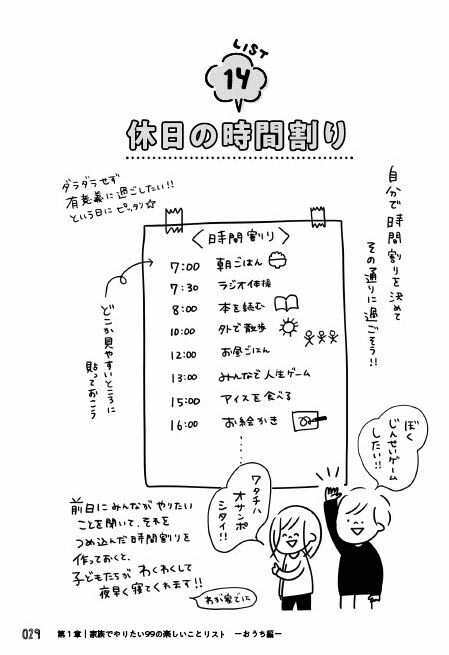 LIST
14
休日の時間割り
ダラダラせず
有意義に過ごしたい!!
という日にピッタリ☆
自分で時間割りを決めて
その通りに過ごそう!!
〈時間割り〉
7:00 朝ごはん
7:30 ラジオ体操
8:00 本を読む
10:00 外で散歩
12:00 お昼ごはん
13:00 みんなで人生ゲーム
15:00 アイスを食べる
16:00 お絵かき
どこか見やすいところに
貼っておこう
ぼく
じんせいゲーム
したい!!
ワタチハ
オサンポ
シタイ!
前日にみんながやりたい
ことを聞いて、それを
つめ込んだ時間割りを
作っておくと、
子どもたちがわくわくして
夜早く寝てくれます!!
わが家でに
029 第1章|家族でやりたい99の楽しいことリスト ーおうち編ー